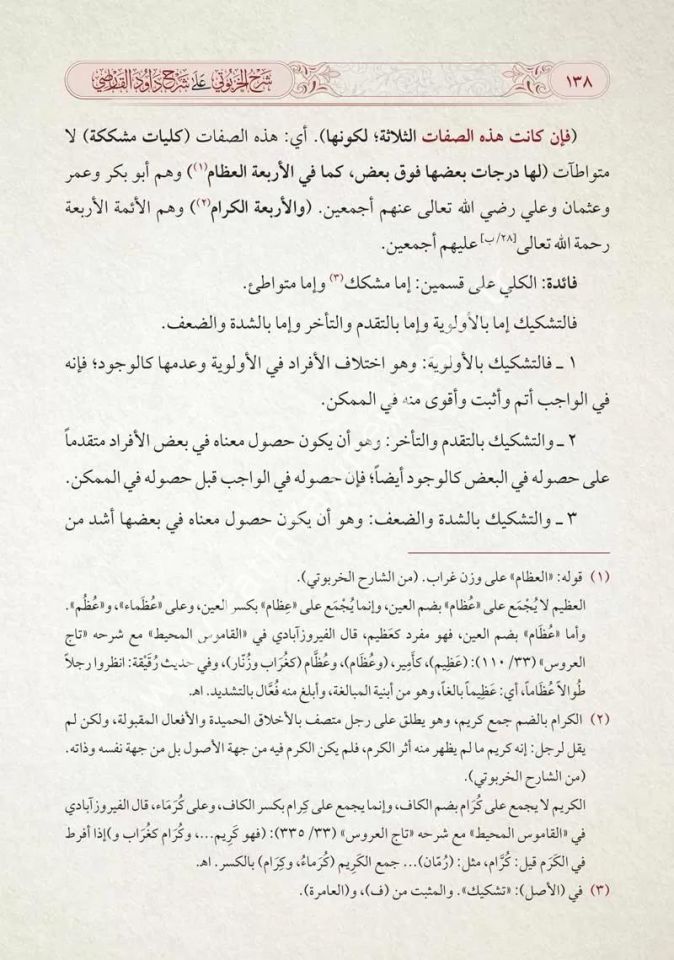 ١٣٨
شرح الخربوتي على شرح داود القارصي
(فإن كانت هذه الصفات الثلاثة؛ لكونها). أي: هذه الصفات (كليات مشككة) لا
متواطآت (لها درجات بعضها فوق بعض، كما في الأربعة العظام(١)) وهم أبو بكر وعمر
وعثمان وعلي رضي الله تعالى عنهم أجمعين. (والأربعة الكرام(٢)) وهم الأئمة الأربعة
رحمة الله تعالى[٢٨/ب] عليهم أجمعين.
فائدة: الكلي على قسمين: إما مشكك(٣) وإما متواطئ.
فالتشكيك إما بالأولوية وإما بالتقدم والتأخر وإما بالشدة والضعف.
١ ـ فالتشكيك بالأولوية: وهو اختلاف الأفراد في الأولوية وعدمها كالوجود؛ فإنه
في الواجب أتم وأثبت وأقوى منه في الممكن.
٢ ـ والتشكيك بالتقدم والتأخر: وهو أن يكون حصول معناه في بعض الأفراد متقدماً
على حصوله في البعض كالوجود أيضاً؛ فإن حصوله في الواجب قبل حصوله في الممكن.
٣ ـ والتشكيك بالشدة والضعف: وهو أن يكون حصول معناه في بعضها أشد من
(١) قوله: «العظام» على وزن غراب. (من الشارح الخربوتي).
العظيم لا يُجْمَع على «عُظام» بضم العين، وإنما يُجْمَع على «عِظام» بكسر العين، وعلى «عُظَماء»، و«عُظُم».
وأما «عُظَام» بضم العين، فهو مفرد كعَظيم، قال الفيروزآبادي في «القاموس المحيط» مع شرحه «تاج
العروس» (٣٣/ ١١٠): (عَظِيم)، كأَمِير، (وعُظَام)، وعُظَّام (كغُراب وزُنّار)، وفي حديث رُقَيْقة: انظروا رجلاً
طُوالاً عُظَاماً، أي: عَظِيماً بالغاً، وهو من أبنية المبالغة، وأبلغ منه فُعَّال بالتشديد. اهـ.
(٢) الكرام بالضم جمع كريم، وهو يطلق على رجل متصف بالأخلاق الحميدة والأفعال المقبولة، ولكن لم
يقل لرجل: إنه كريم ما لم يظهر منه أثر الكرم، فلم يكن الكرم فيه من جهة الأصول بل من جهة نفسه وذاته.
(من الشارح الخربوتي).
الكريم لا يجمع على كُرَام بضم الكاف، وإنما يجمع على كِرام بكسر الكاف، وعلى كُرَمَاء، قال الفيروزآبادي
في «القاموس المحيط» مع شرحه «تاج العروس» (٣٣/ ٣٣٥): (فهو كَرِيم...، وكُرَام كغُرَاب و)إذا أفرط
في الكَرَم قيل: كُرَّام، مثل: (رُمّان)... جمع الكَرِيم (كُرَماءُ، وكِرَام) بالكسر. اهـ.
(٣) في (الأصل): «تشكيك». والمثبت من (ف)، و(العامرة).